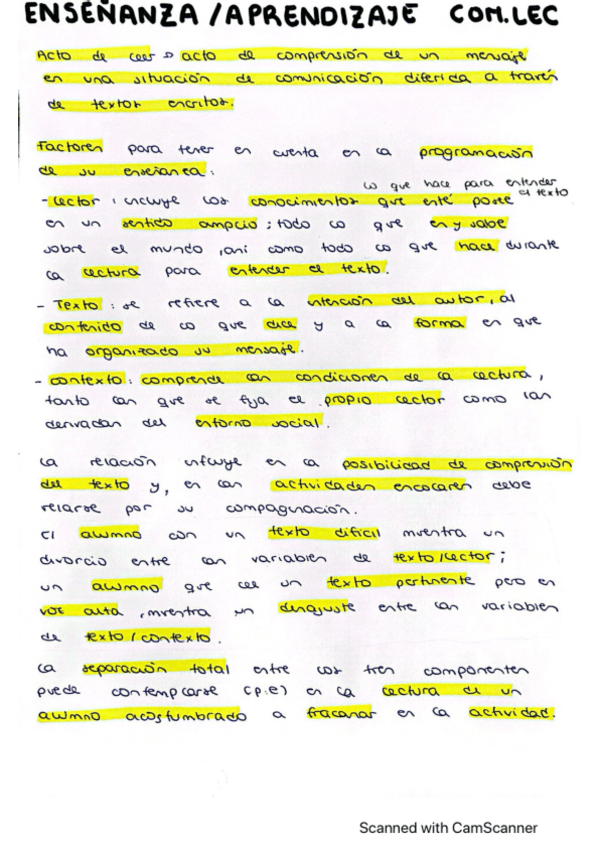 ENSEÑANZA / APRENDIZAJE COM.LEC
Acto de leer → acto de comprensión de un mensaje
en una situación de comunicación diferida a través
de textos escritos.
Factores para tener en cuenta en la programación
de su enseñanza:
lo que hace para entender
el texto
- Lector: incluye los conocimientos que esté posee
en un sentido amplio; todo lo que es y sabe
sobre el mundo, así como todo lo que hace durante
la lectura para entender el texto.
- Texto: se refiere a la intención del autor, al
contenido de lo que dice y a la forma en que
ha organizado su mensaje.
- contexto: comprende las condiciones de la lectura,
tanto las que se fija el propio lector como las
derivadas del entorno social.
La relación influye en la posibilidad de comprensión
del texto y, en las actividades escolares debe
velarse por su compaginación.
El alumno con un texto difícil muestra un
divorcio entre las variables de texto/lector;
un alumno que lee un texto pertinente pero en
voz alta, muestra un desajuste entre las variables
de texto/contexto.
La separación total entre los tres componentes
puede contemplarse (p.e) en la lectura de un
alumno acostumbrado a fracasar en la actividad.
Scanned with CamScanner